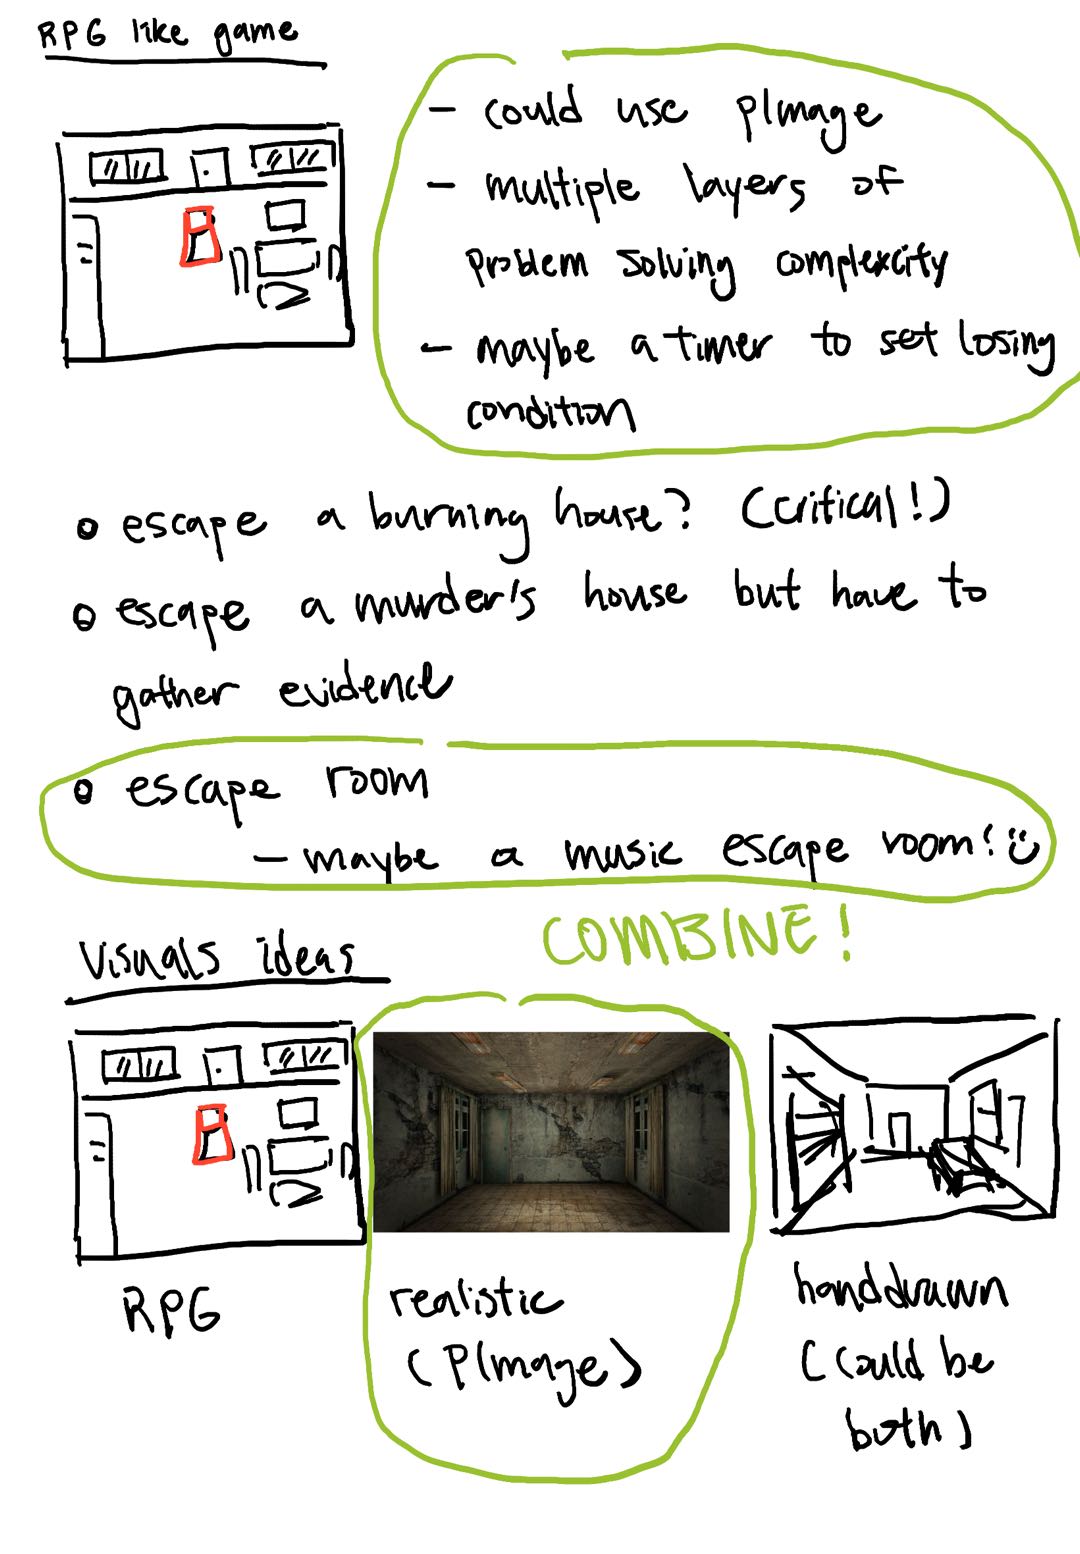 RPG like game
- could use PImage
- multiple layers of
problem solving complexcity
- maybe a timer to set losing
condition
• escape a burning house? (critical!)
• escape a murder's house but have to
gather evidence
• escape room
- maybe a music escape room!
COMBINE!
Visuals ideas
RPG
realistic
(PImage)
handdrawn
(could be
both)